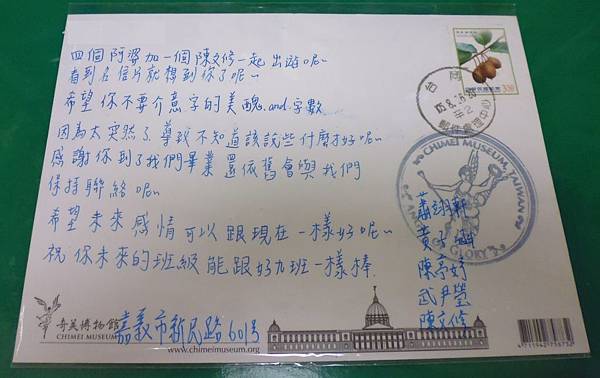 四個阿婆加一個陳文修一起出遊呢~
看到名信片就想到你了呢~
希望你不要介意字的美醜and字數
因為太突然了導致不知道該說些什麼才好呢~
感謝你到了我們畢業還依舊會與我們
保持聯絡呢~
希望未來感情可以跟現在一樣好呢~
祝你未來的班級能跟好九班一樣棒
CHIMEI MUSEUM, TAIWAN
GLORY
蕭翊軒
陳亭妤
武尹瑩
陳文修
嘉義市新民路601號
奇美博物館
CHIMEI MUSEUM
www.chimeimuseum.org